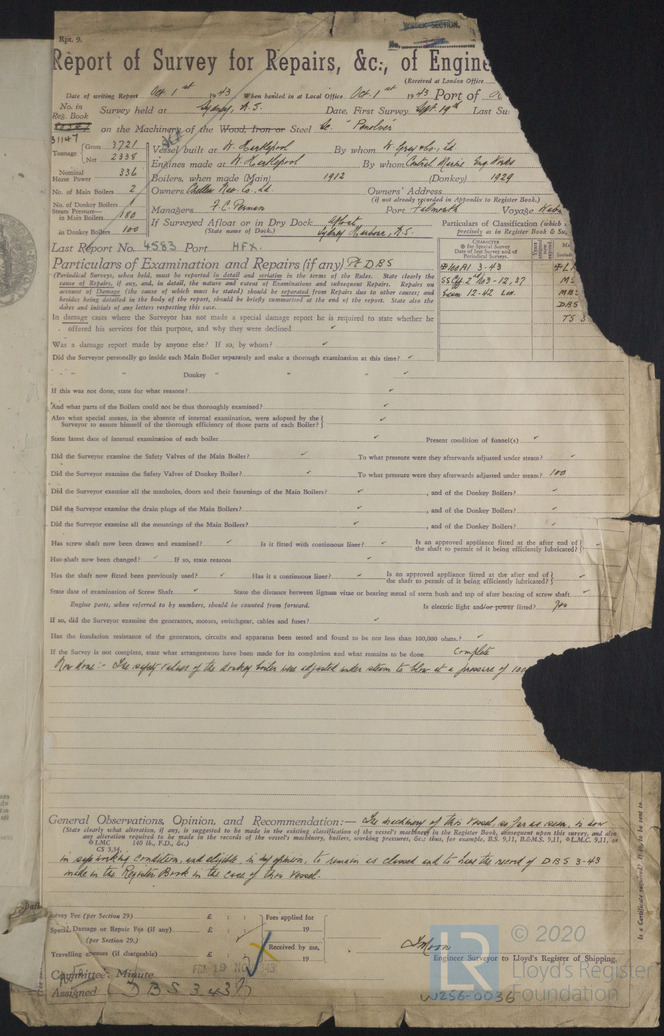 Rpt. 9.
UNDER SECTION.
No.
Report of Survey for Repairs, &c., of Engine
(Received at London Office
Date of writing Report Oct 1st 1943 When handed in at Local Office Oct 1st 1943 Port of
No. in Reg. Book Survey held at Sydney, N.S. Date, First Survey Sept 19th Last Su
31147 on the Machinery of the Wood, Iron or Steel Sc. "Penolver"
Tonnage Gross 3721 Net 2338
Vessel built at W. Hartlepool By whom W. Gray & Co., Ld
Engines made at W. Hartlepool By whom Central Marine Eng. Works
Nominal Horse Power 336 Boilers, when made (Main) 1912 (Donkey) 1929
No. of Main Boilers 2 Owners Chellew Nav. Co. Ld. Owners' Address
(if not already recorded in Appendix to Register Book.)
No. of Donkey Boilers 1
Steam Pressure— in Main Boilers 180 Managers F.C. Perman Port Falmouth Voyage
in Donkey Boilers 100 If Surveyed Afloat or in Dry Dock Afloat
(State name of Dock.) Sydney Harbour, N.S.
Particulars of Classification (which
precisely as in Register Book & Su
Last Report No. 4583 Port HFX.
CHARACTER
for Special Survey
Date of last Survey and of
Periodical Surveys.
Particulars of Examination and Repairs (if any) Pt DBS
(Periodical Surveys, when held, must be reported in detail and seriatim in the terms of the Rules. State clearly the
cause of Repairs, if any, and, in detail, the nature and extent of Examinations and subsequent Repairs. Repairs on
account of Damage (the cause of which must be stated) should be separated from Repairs due to other causes; and
besides being detailed in the body of the report, should be briefly summarised at the end of the report. State also the
dates and initials of any letters respecting this case.
100A1 3-43
SS 2nd No3-12,37
12-42 Lon.
DBS
TS 3
In damage cases where the Surveyor has not made a special damage report he is required to state whether he
offered his services for this purpose, and why they were declined ✓
Was a damage report made by anyone else? If so, by whom? ✓
Did the Surveyor personally go inside each Main Boiler separately and make a thorough examination at this time? ✓
" " Donkey " " " ✓
If this was not done, state for what reasons? ✓
And what parts of the Boilers could not be thus thoroughly examined? ✓
Also what special means, in the absence of internal examination, were adopted by the
Surveyor to assure himself of the thorough efficiency of those parts of each Boiler? ✓
State latest date of internal examination of each boiler ✓ Present condition of funnel(s) ✓
Did the Surveyor examine the Safety Valves of the Main Boiler? ✓ To what pressure were they afterwards adjusted under steam? ✓
Did the Surveyor examine the Safety Valves of Donkey Boiler? ✓ To what pressure were they afterwards adjusted under steam? 100
Did the Surveyor examine all the manholes, doors and their fastenings of the Main Boilers? ✓ , and of the Donkey Boilers? ✓
Did the Surveyor examine the drain plugs of the Main Boilers? ✓ , and of the Donkey Boilers? ✓
Did the Surveyor examine all the mountings of the Main Boilers? ✓ , and of the Donkey Boilers? ✓
Has screw shaft now been drawn and examined? ✓ Is it fitted with continuous liner? ✓ Is an approved appliance fitted at the after end of
the shaft to permit of it being efficiently lubricated? ✓
Has shaft now been changed? ✓ If so, state reasons ✓
Has the shaft now fitted been previously used? ✓ Has it a continuous liner? ✓ Is an approved appliance fitted at the after end of
the shaft to permit of it being efficiently lubricated? ✓
State date of examination of Screw Shaft ✓ State the distance between lignum vitae or bearing metal of stern bush and top of after bearing of screw shaft ✓
Engine parts, when referred to by numbers, should be counted from forward. Is electric light and/or power fitted? Yes
If so, did the Surveyor examine the generators, motors, switchgear, cables and fuses? ✓
Has the insulation resistance of the generators, circuits and apparatus been tested and found to be not less than 100,000 ohms.? ✓
If the Survey is not complete, state what arrangements have been made for its completion and what remains to be done Complete
Now done:- The safety valves of the donkey boiler was adjusted under steam to blow at a pressure of 100
General Observations, Opinion, and Recommendation:— The machinery of this vessel, as far as seen, is now
(State clearly what alteration, if any, is suggested to be made in the existing classification of the vessel's machinery in the Register Book, consequent upon this survey, and also
any alteration required to be made in the records of the vessel's machinery, boilers, working pressures, &c.; thus, for example, B.S. 9,11, B.&M.S. 9,11, L.M.C. 9,11, or
LMC 140 lb., F.D., &c.)
CS 3,34,
in safe working condition, and eligible, in my opinion, to remain as classed and to have the record of DBS 3-43
made in the Register Book in the case of this vessel.
Is a Certificate required? If so, to be sent to
Survey Fee (per Section 29) £ : : Fees applied for
Special Damage or Repair Fee (if any) £ : : 19
(per Section 29.)
Received by me,
Travelling expenses (if chargeable) £ : : 19
J Moon
Engineer Surveyor to Lloyd's Register of Shipping.
Committee's Minute FRI 19 NOV 1943
Assigned DBS 3 43
© 2020
LR
Lloyd's Register
Foundation
W256-0036